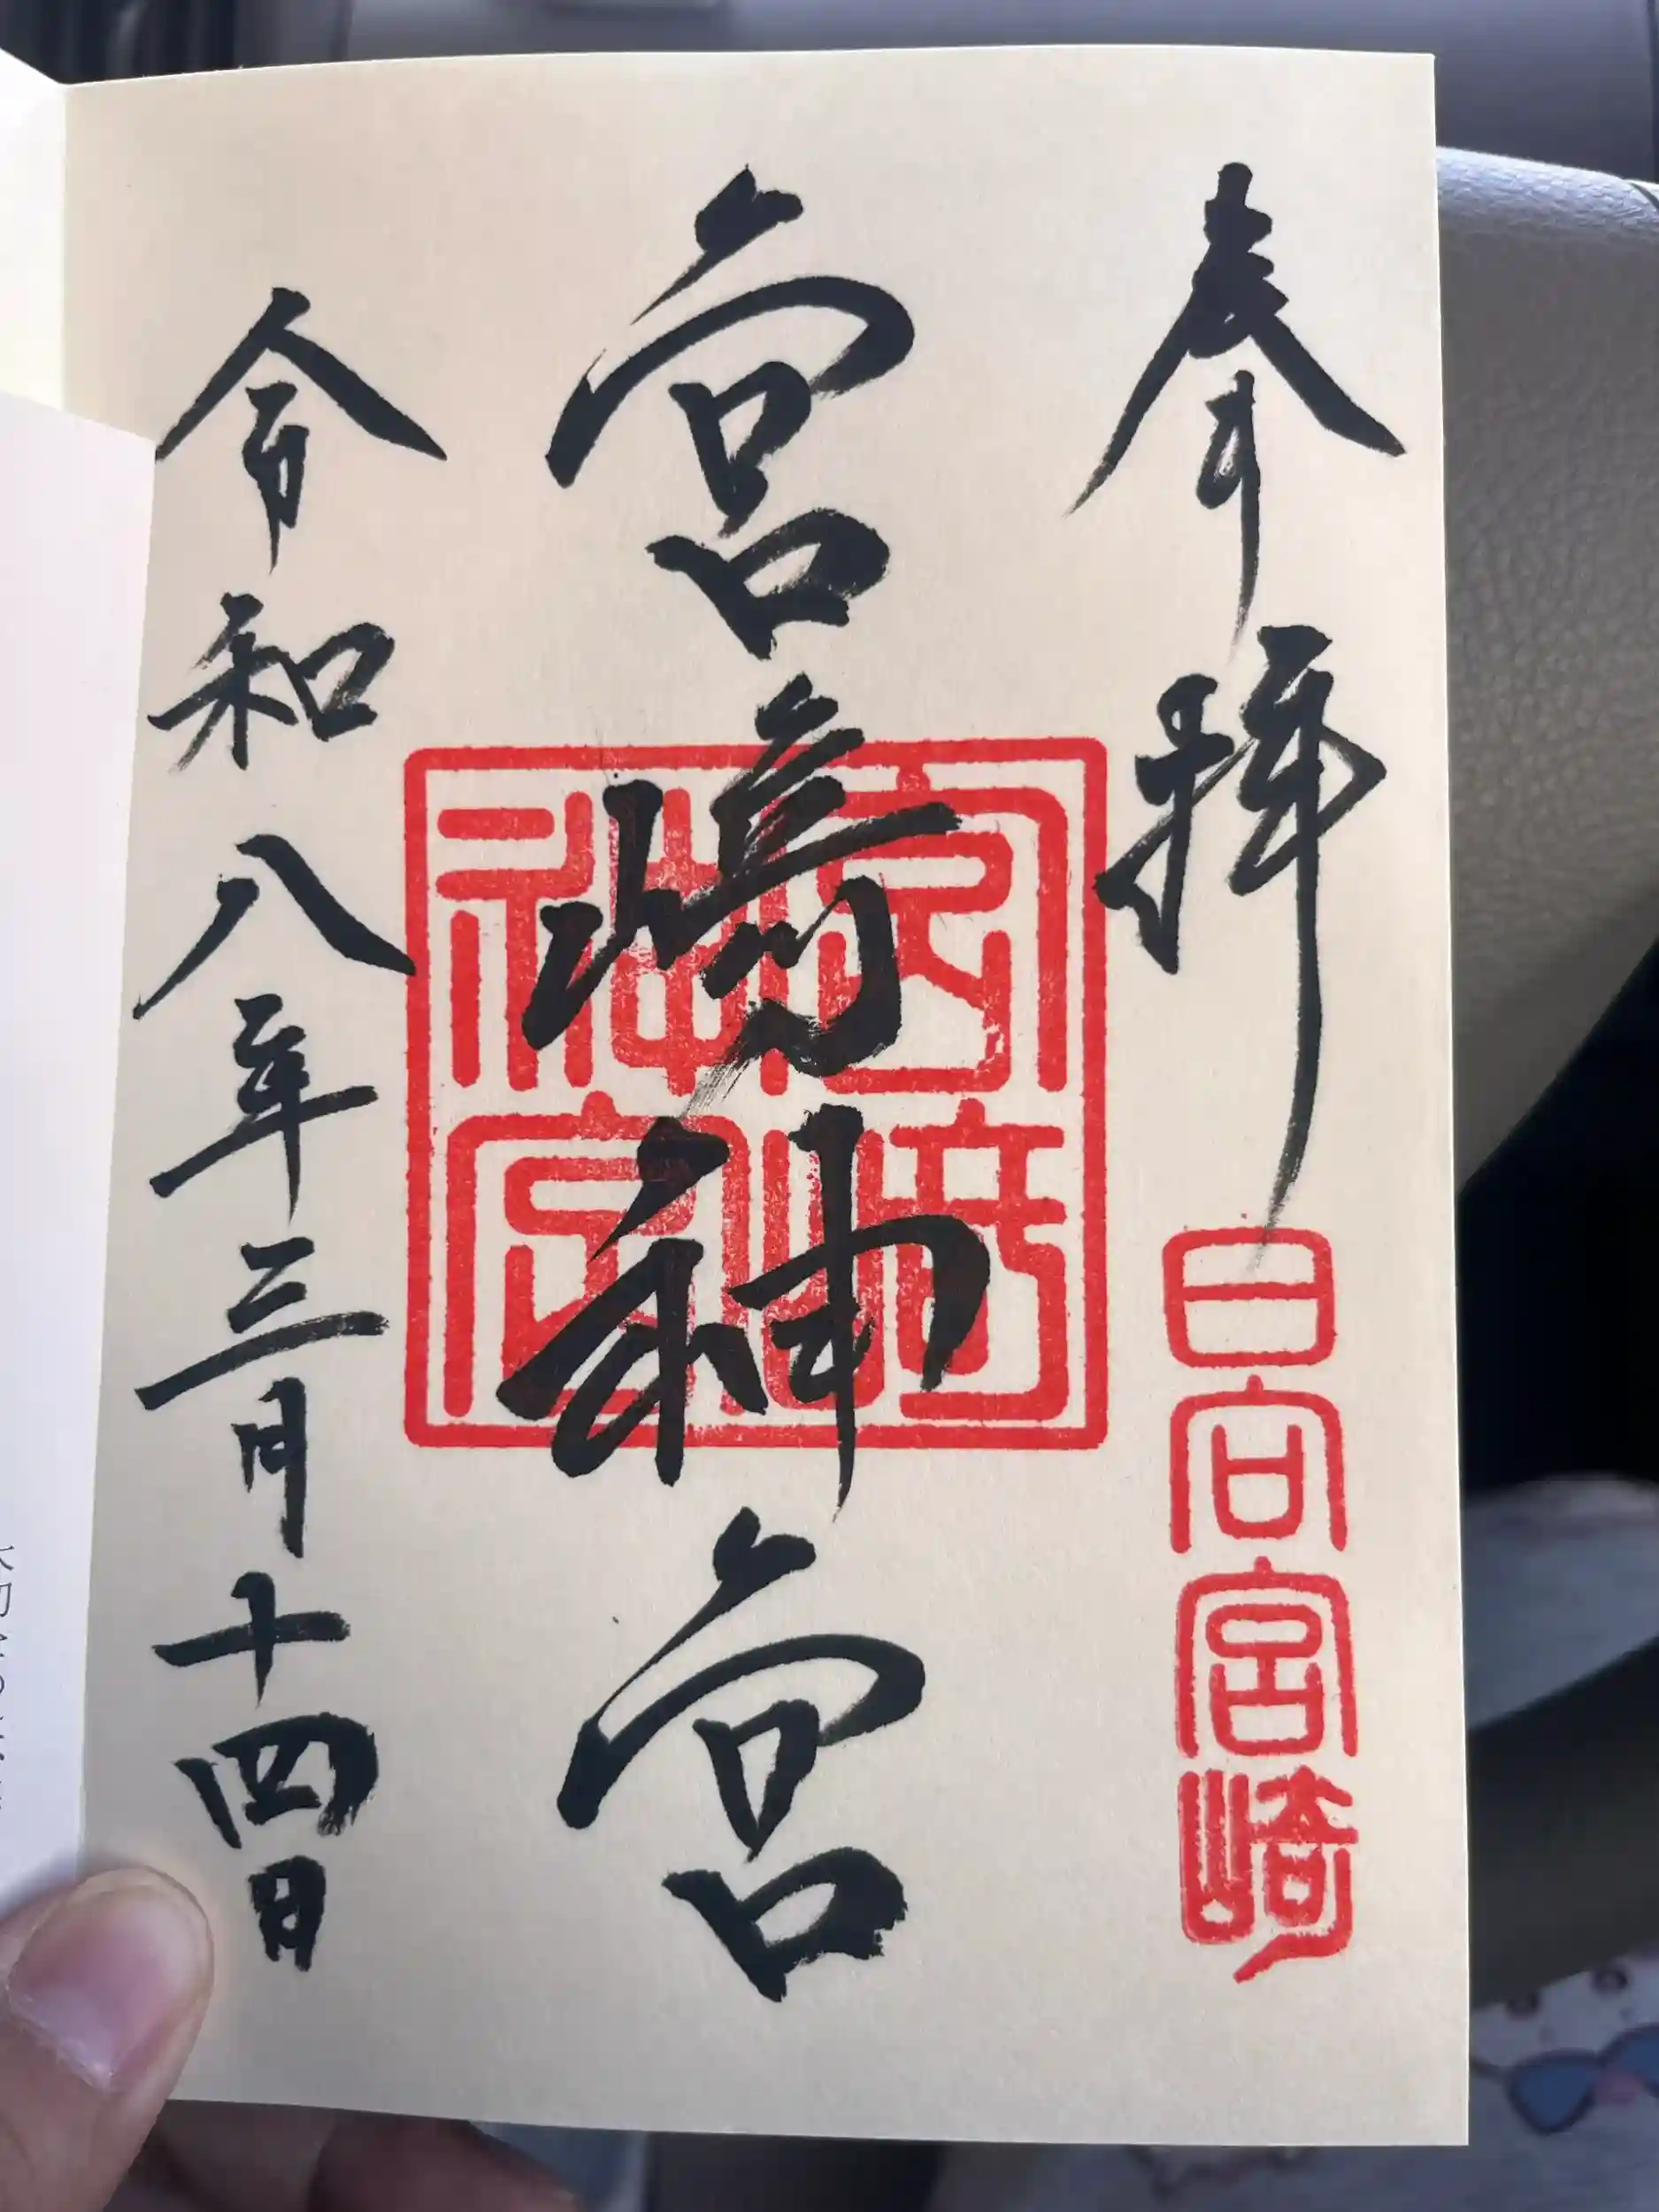 奉拝
日向宮崎
宮﨑神宮
宮崎神宮
令和八年三月十四日